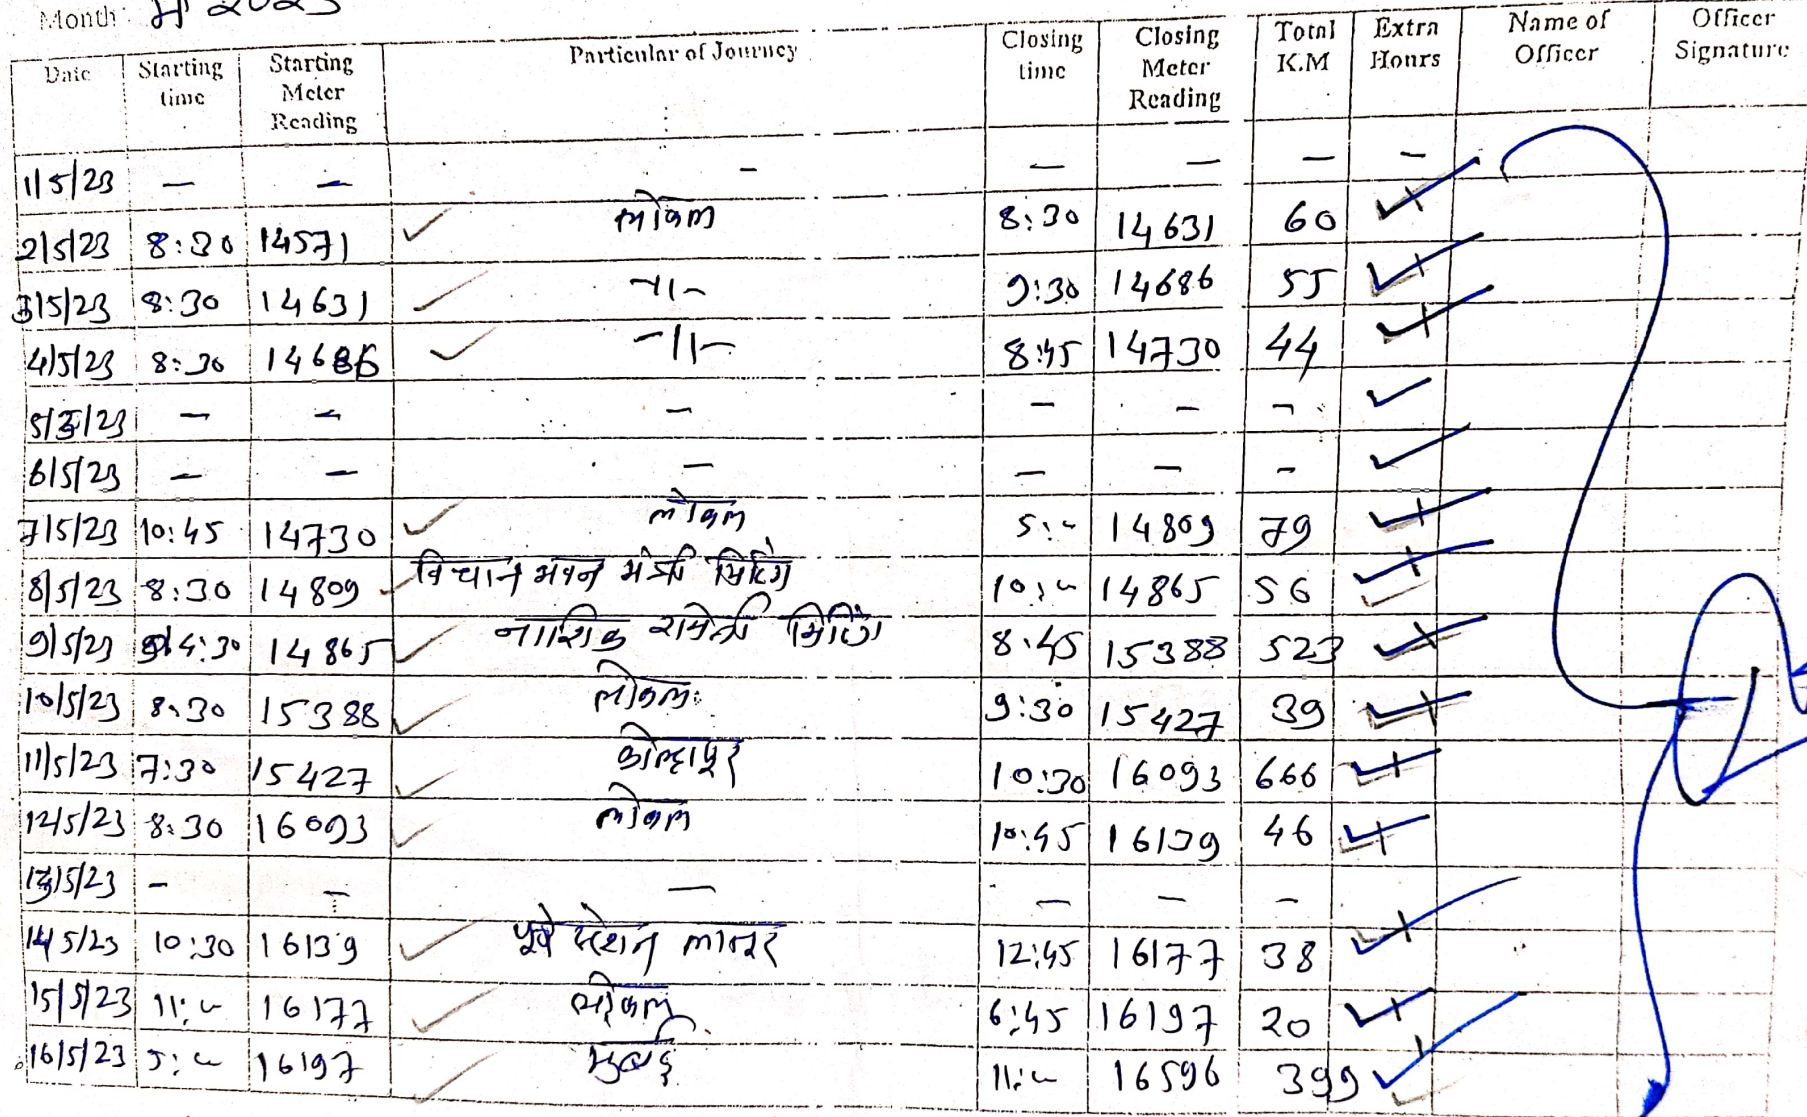 Month: मे 2023
Date Starting time Starting Meter Reading Particular of Journey Closing time Closing Meter Reading Total K.M Extra Hours Name of Officer Officer Signature
1/5/23 — — — — — — —
2/5/23 8:30 14571 लोकल 8:30 14631 60
3/5/23 8:30 14631 -11- 9:30 14686 55
4/5/23 8:30 14686 -11- 8:45 14730 44
5/5/23 — — — — — —
6/5/23 — — — — — —
7/5/23 10:45 14730 लोकल 5:00 14809 79
8/5/23 8:30 14809 विधान भवन मिटिंग 10:00 14865 56
9/5/23 4:30 14865 नाशिक मिटिंग 8:45 15388 523
10/5/23 8:30 15388 लोकल 9:30 15427 39
11/5/23 7:30 15427 कोल्हापूर 10:30 16093 666
12/5/23 8:30 16093 लोकल 10:45 16139 46
13/5/23 — — — — — —
14/5/23 10:30 16139 पूणे स्टेशन 12:45 16177 38
15/5/23 11:00 16177 लोकल 6:45 16197 20
16/5/23 5:00 16197 मुंबई 11:00 16596 399